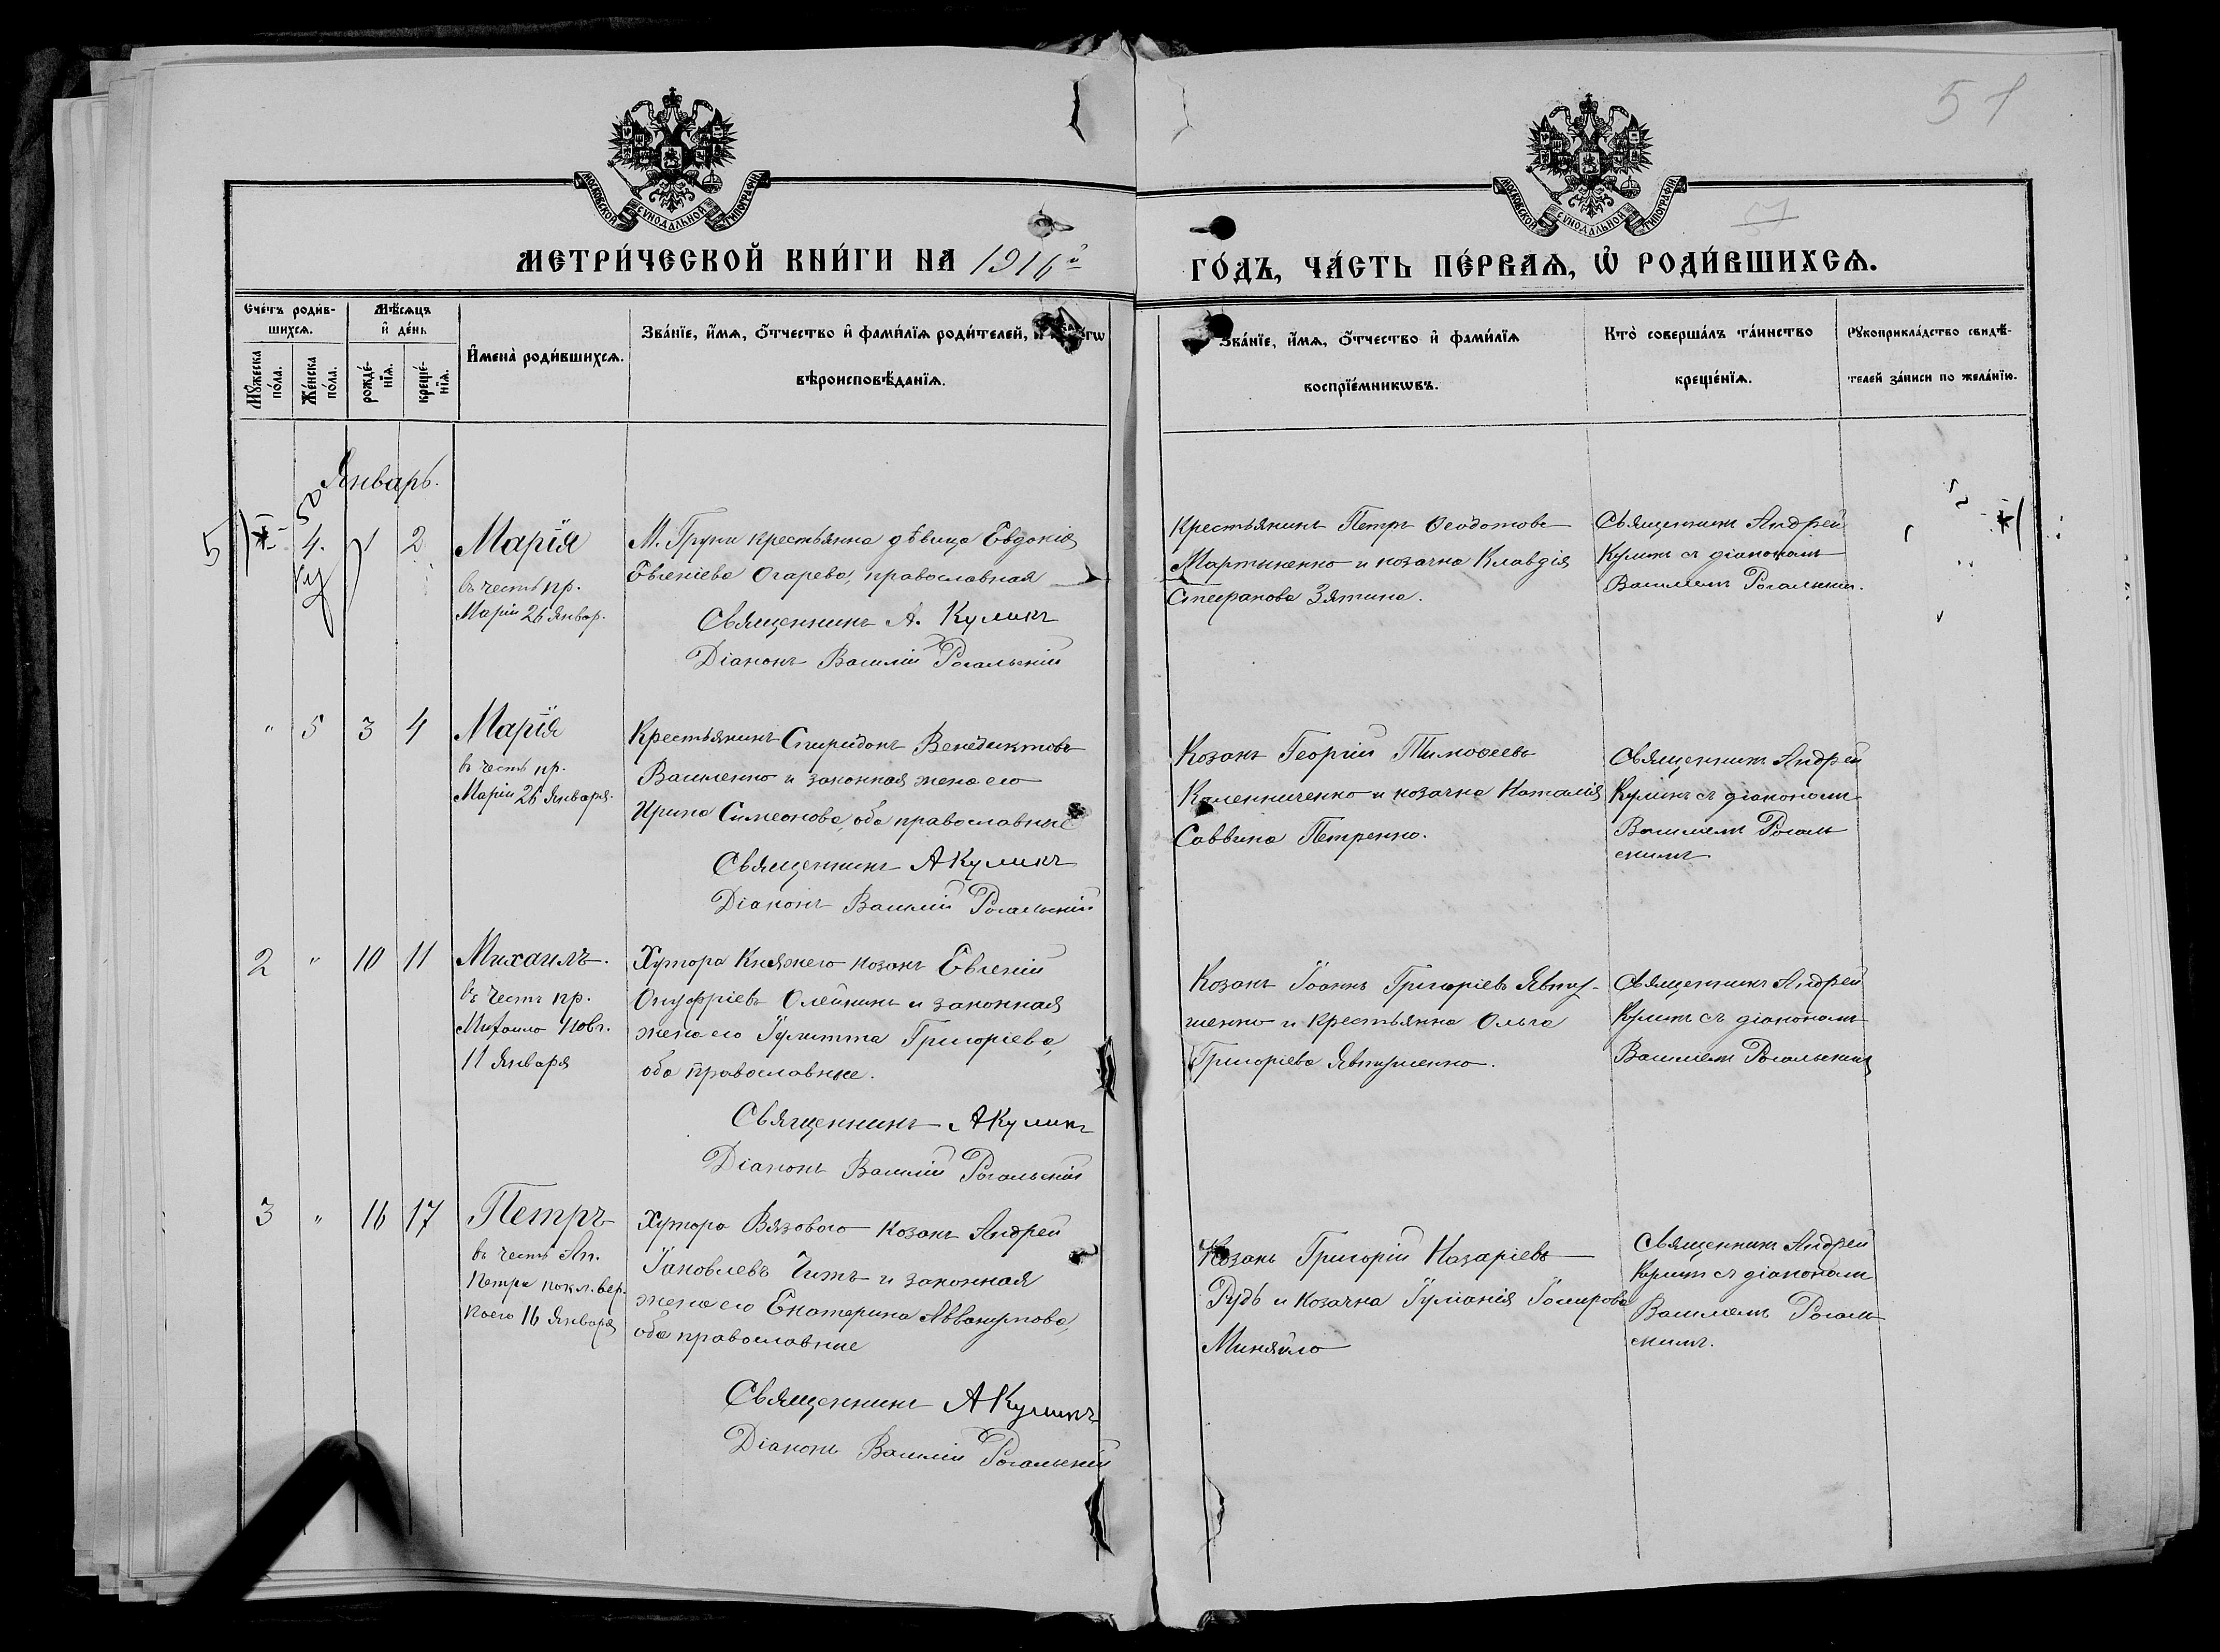 51
МОСКОВСКОЙ СѴНОДАЛЬНОЙ ТИПОГРАФІИ
МОСКОВСКОЙ СѴНОДАЛЬНОЙ ТИПОГРАФІИ
МЕТРИ́ЧЕСКОЙ КНИ́ГИ НА 1916й
ГО́ДЪ, ЧА́СТЬ ПЕ́РВАѦ, Ѡ҆ РОДИ́ВШИХСѦ.
Сче́тъ роди́в-
шихсѧ.
Мꙋ́жеска по́ла.
Же́нска по́ла.
Мѣ́сѧцъ
и҆ де́нь
рожде́-
нїѧ.
креще́-
нїѧ.
И҆мена̀ роди́вшихсѧ.
Зва́нїе, и҆́мѧ, ѻ҆́тчество и҆ фами́лїѧ роди́телей, и҆
вѣроисповѣ́данїѧ.
Зва́нїе, и҆́мѧ, ѻ҆́тчество и҆ фами́лїѧ
воспрїе́мникѡвъ.
Кто̀ соверша́лъ та́инство
креще́нїѧ.
Рꙋкоприкла́дство свидѣ́-
телей за́писи по жела́нїю.
Январь.
5
4. 1 2
Марія
въ честь пр.
Маріи 26 Январ.
М. Груни крестьянка дѣвица Евдокія
Евгеніева Огарева, православная
Священникъ А. Куликъ
Діаконъ Василій Рогальскій
Крестьянинъ Петръ Ѳеодотовъ
Мартыненко и козачка Клавдія
Стефанова Зятина.
Священникъ Андрей
Куликъ съ діакономъ
Василіемъ Рогальскимъ.
" 5 3 4
Марія
въ честь пр.
Маріи 26 Января.
Крестьянинъ Спиридонъ Венедиктовъ
Василенко и законная жена его
Ирина Симеонова, оба православные
Священникъ А Куликъ
Діаконъ Василій Рогальскій
Козакъ Георгій Тимоѳеевъ
Каленниченко и козачка Наталія
Саввина Петренко.
Священникъ Андрей
Куликъ съ діакономъ
Василіемъ Рогаль
скимъ
2 " 10 11
Михаилъ.
въ честь пр.
Михаила Новг.
11 Января
Хутора Княжего козакъ Евгеній
Онуфріевъ Олейникъ и законная
жена его Іулитта Григоріева,
оба православные.
Священникъ А Куликъ
Діаконъ Василій Рогальскій
Козакъ Іоаннъ Григоріевъ Явту-
шенко и крестьянка Ольга
Григоріева Явтушенко.
Священникъ Андрей
Куликъ съ діакономъ
Василіемъ Рогальскимъ
3 " 16 17
Петръ
въ честь Ап.
Петра покл. вер.
коего 16 Января
Хутора Вязового козакъ Андрей
Іаковлевъ Читъ и законная
жена его Екатерина Аввакумова,
оба православные
Священникъ А Куликъ
Діаконъ Василій Рогальскій
Козакъ Григорій Назаріевъ
Рудь и козачка Іуліанія
Миняйло
Священникъ Андрей
Куликъ съ діакономъ
Василіемъ Рогаль
скимъ.